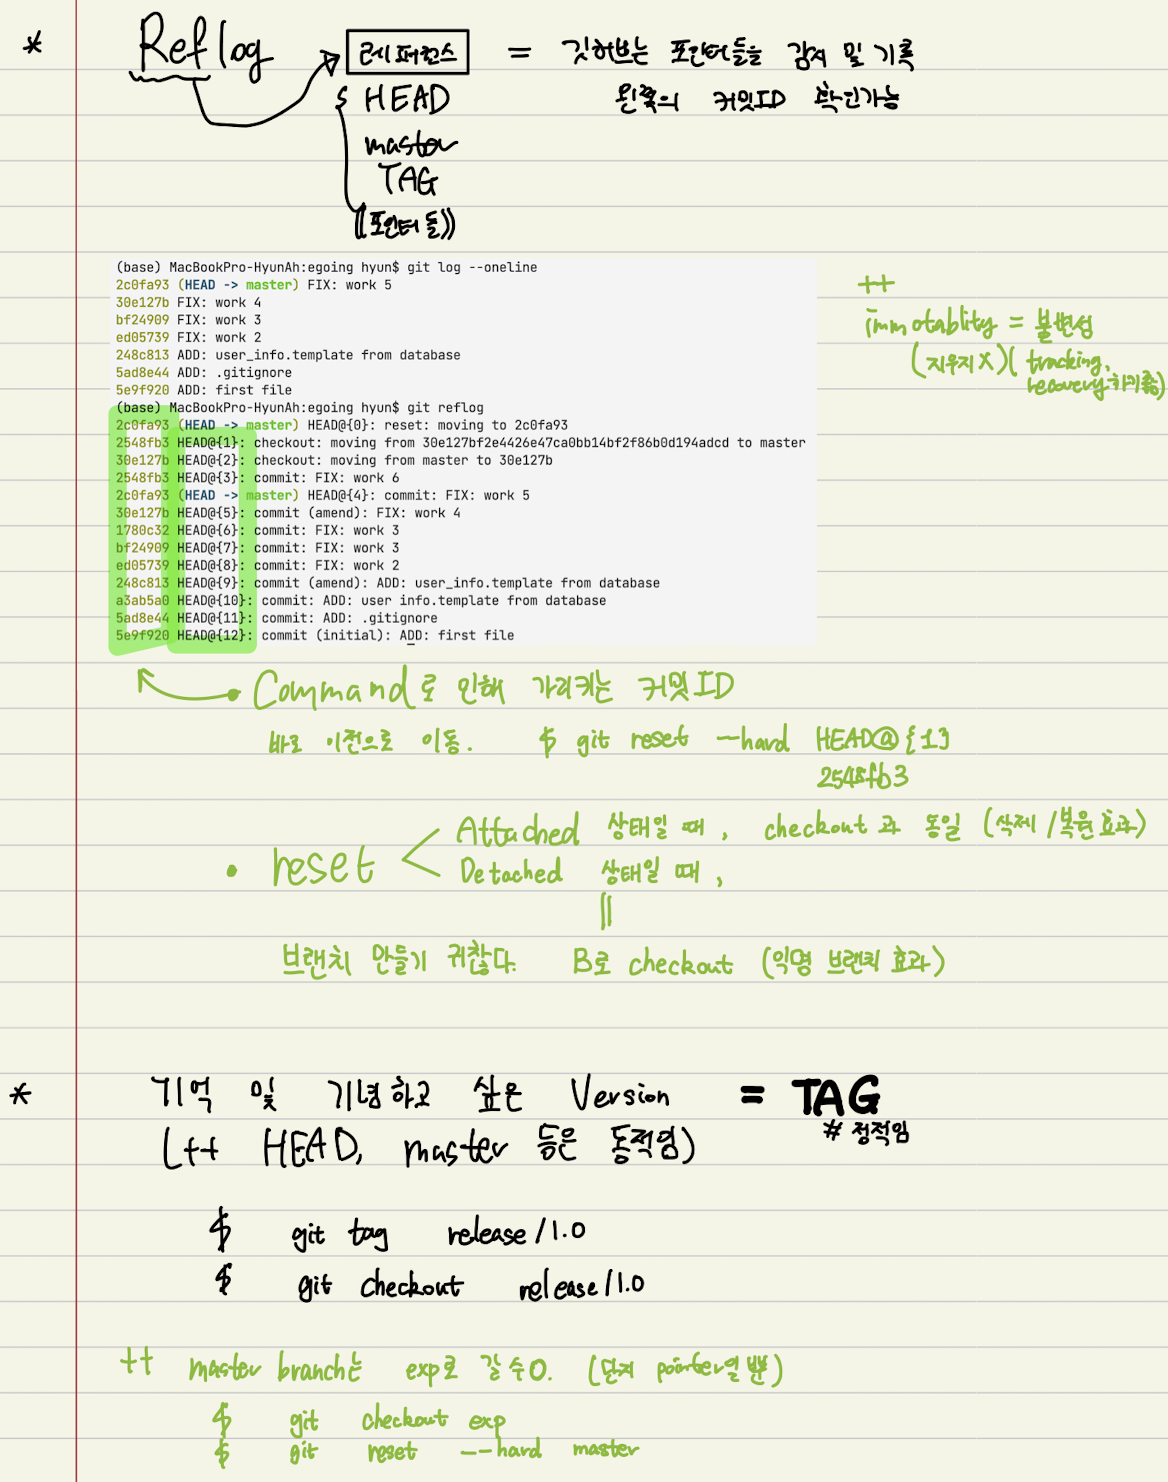 * Reflog → 레퍼런스 = 깃허브는 포인터들을 감지 및 기록
HEAD 왼쪽의 커밋ID 확인가능
master
TAG
((포인터들))
(base) MacBookPro-HyunAh:egoing hyun$ git log --oneline
2c0fa93 (HEAD -> master) FIX: work 5
30e127b FIX: work 4
bf24909 FIX: work 3
ed05739 FIX: work 2
248c813 ADD: user_info.template from database
5ad8e44 ADD: .gitignore
5e9f920 ADD: first file
(base) MacBookPro-HyunAh:egoing hyun$ git reflog
2c0fa93 (HEAD -> master) HEAD@{0}: reset: moving to 2c0fa93
2548fb3 HEAD@{1}: checkout: moving from 30e127bf2e4426e47ca0bb14bf2f86b0d194adcd to master
30e127b HEAD@{2}: checkout: moving from master to 30e127b
2548fb3 HEAD@{3}: commit: FIX: work 6
2c0fa93 (HEAD -> master) HEAD@{4}: commit: FIX: work 5
30e127b HEAD@{5}: commit (amend): FIX: work 4
1780c32 HEAD@{6}: commit: FIX: work 3
bf24909 HEAD@{7}: commit: FIX: work 3
ed05739 HEAD@{8}: commit: FIX: work 2
248c813 HEAD@{9}: commit (amend): ADD: user_info.template from database
a3ab5a0 HEAD@{10}: commit: ADD: user info.template from database
5ad8e44 HEAD@{11}: commit: ADD: .gitignore
5e9f920 HEAD@{12}: commit (initial): ADD: first file
++
immotablity = 불변성
(지우지X)( tracking,
recovery하기좋음)
• Command로 인해 가리키는 커밋ID
바로 이전으로 이동. $ git reset --hard HEAD@{1}
2548fb3
• reset < Attached 상태일 때, checkout과 동일 (삭제/복원효과)
Detached 상태일 때,
||
브랜치 만들기 귀찮다. B로 checkout (익명 브랜치 효과)
* 기억 및 기념하고 싶은 Version = TAG
# 정적임
(++ HEAD, master 등은 동적임)
$ git tag release/1.0
$ git checkout release/1.0
++ master branch는 exp로 갈 수O. (단지 pointer일 뿐)
$ git checkout exp
$ git reset --hard master